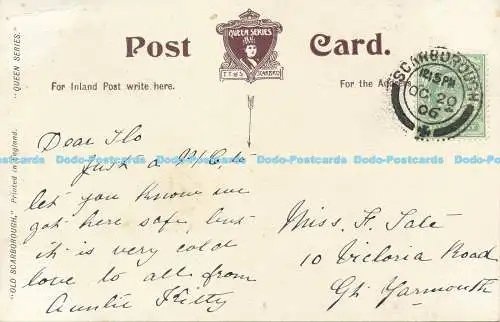 Post Card.
QUEEN SERIES
E.T.W.D SCARBRO
For Inland Post write here.
For the Address
SCARBOROUGH
12.15PM
OC 20
06
"QUEEN SERIES."
Printed in England.
"OLD SCARBOROUGH."
Dear Flo
Just a P.C. to
let you know we
got here safe but
it is very cold
love to all from
Auntie Kitty
Miss. F. Tate
10 Victoria Road
Gt. Yarmouth
Dodo-Postcards Dodo-Postcards Dodo-Postcards Dodo-Postcards Dodo-Postcards Dodo-Postcards